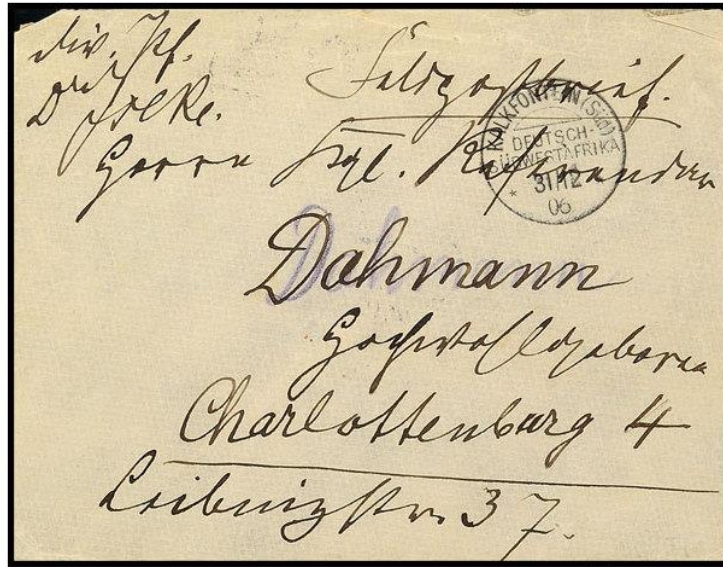 Div. Pf.
Feldpostbrief.
KALKFONTEIN (Süd)
DEUTSCH-
SÜDWESTAFRIKA
31/12
06
Herrn Kgl. Referendar
Dahmann
Hochwohlgeboren
Charlottenburg 4
Leibnizstr. 37.